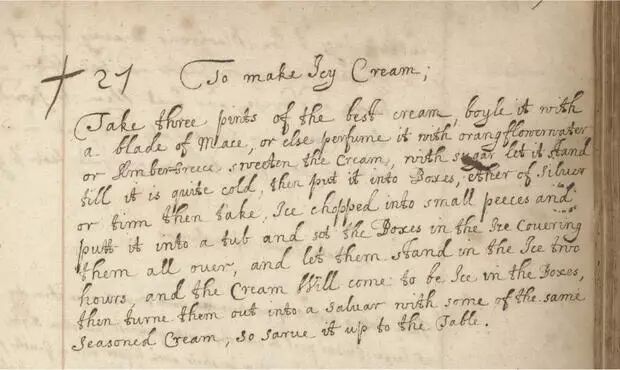 27 To make Icy Cream;
Take three pints of the best cream, boyle it with
a blade of Mace, or else perfume it with orang flowerwater
or Amber-Greece sweeten the Cream, with sugar let it stand
till it is quite cold, then put it into Boxes, ether of Silver
or tinn then take, Ice chopped into small peeces and
putt it into a tub and set the Boxes in the Ice Covering
them all over, and let them stand in the Ice two
hours, and the Cream Will come to be Ice in the Boxes,
then turne them out into a salvar with some of the same
Seasoned Cream, so sarve it up to the Table.